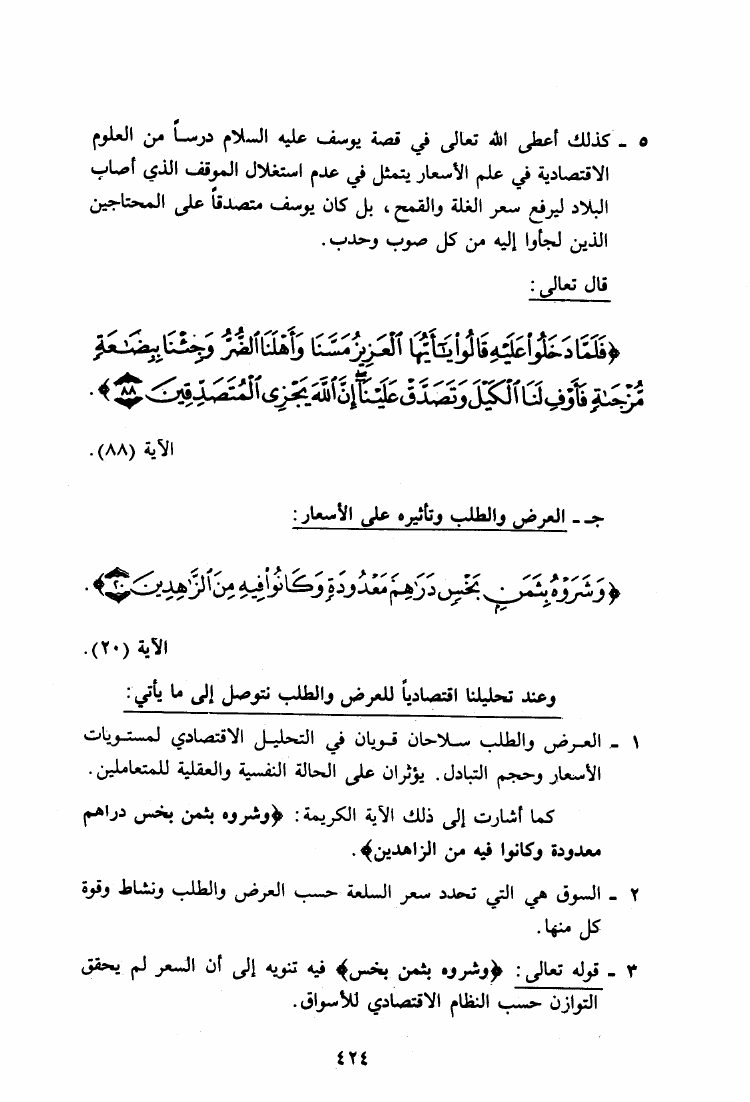 ٥ - كذلك أعطى الله تعالى في قصة يوسف عليه السلام درساً من العلوم
الاقتصادية في علم الأسعار يتمثل في عدم استغلال الموقف الذي أصاب
البلاد ليرفع سعر الغلة والقمح، بل كان يوسف متصدقاً على المحتاجين
الذين لجأوا إليه من كل صوب وحدب.
قال تعالى:
﴿فَلَمَّا دَخَلُوا۟ عَلَيْهِ قَالُوا۟ يَٰٓأَيُّهَا ٱلْعَزِيزُ مَسَّنَا وَأَهْلَنَا ٱلضُّرُّ وَجِئْنَا بِبِضَٰعَةٍ
مُّزْجَىٰةٍ فَأَوْفِ لَنَا ٱلْكَيْلَ وَتَصَدَّقْ عَلَيْنَآ ۖ إِنَّ ٱللَّهَ يَجْزِى ٱلْمُتَصَدِّقِينَ ٨٨﴾.
الآية (٨٨).
جـ - العرض والطلب وتأثيره على الأسعار:
﴿وَشَرَوْهُ بِثَمَنٍۭ بَخْسٍ دَرَٰهِمَ مَعْدُودَةٍ وَكَانُوا۟ فِيهِ مِنَ ٱلزَّٰهِدِينَ ٢٠﴾.
الآية (٢٠).
وعند تحليلنا اقتصادياً للعرض والطلب نتوصل إلى ما يأتي:
١ - العرض والطلب سلاحان قويان في التحليل الاقتصادي لمستويات
الأسعار وحجم التبادل. يؤثران على الحالة النفسية والعقلية للمتعاملين.
كما أشارت إلى ذلك الآية الكريمة: ﴿وشروه بثمن بخس دراهم
معدودة وكانوا فيه من الزاهدين﴾.
٢ - السوق هي التي تحدد سعر السلعة حسب العرض والطلب ونشاط وقوة
كل منها.
٣ - قوله تعالى: ﴿وشروه بثمن بخس﴾ فيه تنويه إلى أن السعر لم يحقق
التوازن حسب النظام الاقتصادي للأسواق.
٤٢٤